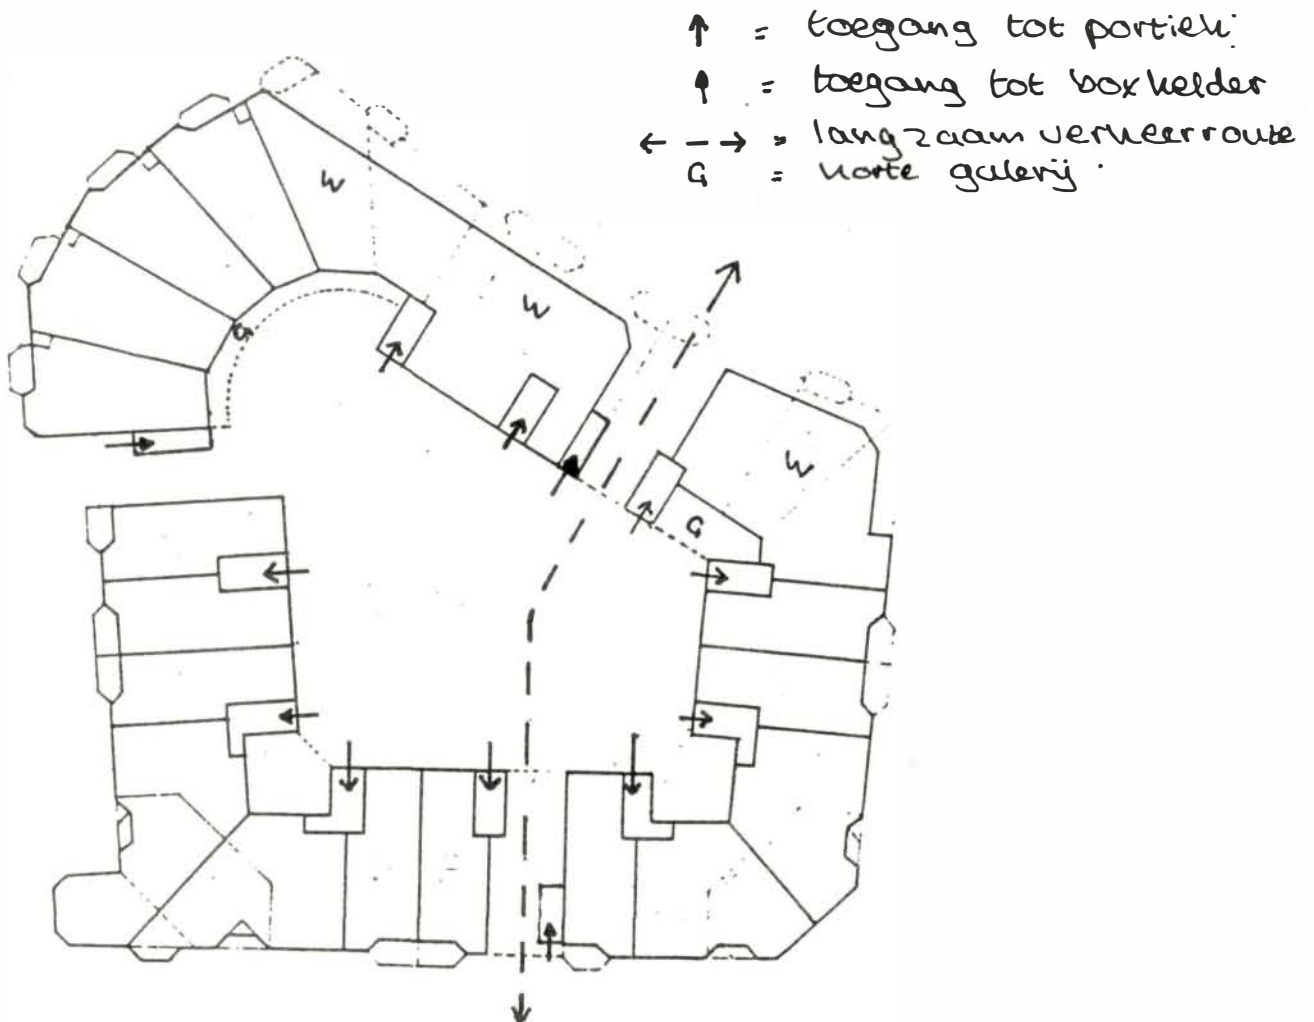 ↑ = toegang tot portiek.
↑ = toegang tot boxkelder
← – → = langzaam verkeerroute
G = korte galerij.
W
W
W
G
G